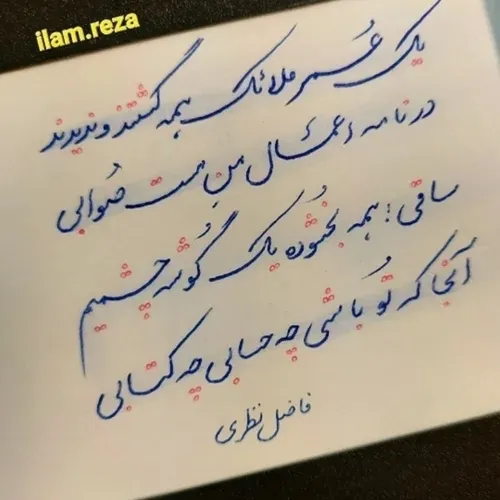 ilam.reza
یک عُمر ملائک همه گشتند و ندیدند
در نامه اعمال من مست صوابی
ساقی! همه بخشوده یک گوشه چشمیم
آنجا که تو باشی چه حسابی چه کتابی
فاضل نظری